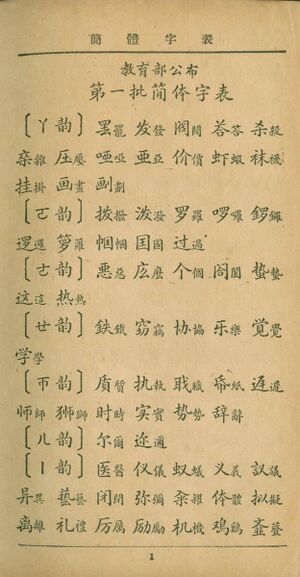 簡體字表
教育部公布
第一批简体字表
〔ㄚ韵〕 罢罷 发發 阀閥 荅答 杀殺
杂雜 压壓 哑啞 亚亞 价價 虾蝦 袜襪
挂掛 画畫 劃
〔ㄛ韵〕 拨撥 泼潑 罗羅 啰囉 鑼
逻邏 箩籮 帼幗 囯國 过過
〔ㄜ韵〕 恶惡 庅麼 个個 閤 蛰蟄
这這 热熱
〔ㄝ韵〕 鉄鐵 窃竊 协協 乐樂 覚覺
学學
〔ㄭ韵〕 质質 执執 职職 帋紙 迟遲
师師 狮獅 时時 实實 势勢 辞辭
〔ㄦ韵〕 尔爾 迩邇
〔ㄧ韵〕 医醫 仪儀 蚁蟻 义義 议議
异異 藝 闭閉 弥彌 籴糴 体體 拟擬
离離 礼禮 厉厲 励勵 机機 鸡鷄
1